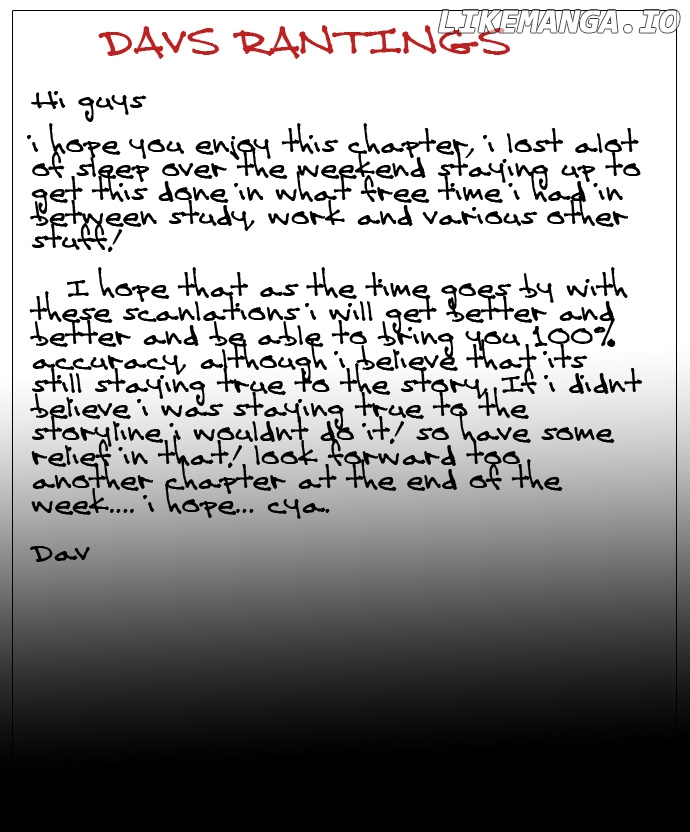 LIKEMANGA.IO
DAVS RANTINGS
Hi guys
i hope you enjoy this chapter, i lost alot
of sleep over the weekend staying up to
get this done in what free time i had in
between study, work and various other
stuff!
I hope that as the time goes by with
these scanlations i will get better and
better and be able to bring you 100%
accuracy, although i believe that its
still staying true to the story, If i didnt
believe i was staying true to the
storyline i wouldnt do it! so have some
relief in that! look forward too
another chapter at the end of the
week.... i hope... cya.
Dav